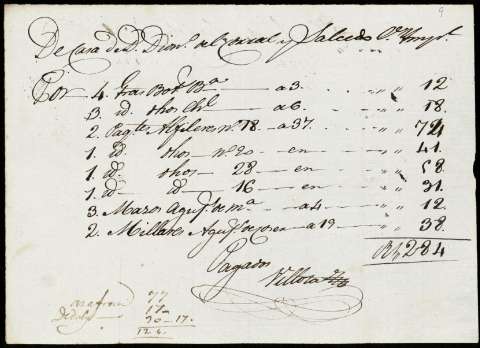 9
De Casa de D. Dion.º del Corral y Salcedo
Por 4. gras Bot.s Ba a 3. 12
3. id. thos Ch.s a 6. 18
2. Paq.tes Alfileres n.º 18. a 37. 74
1. id. thos n.º 20 en 41
1. id. thos 28 en 58
1. id. id. 16 en 31.
3. Mazos Aguj.s de ma a 4 12
2. Millares Aguj.s de coser a 19 38
284
Pagados
Villota
77
17
30 17.